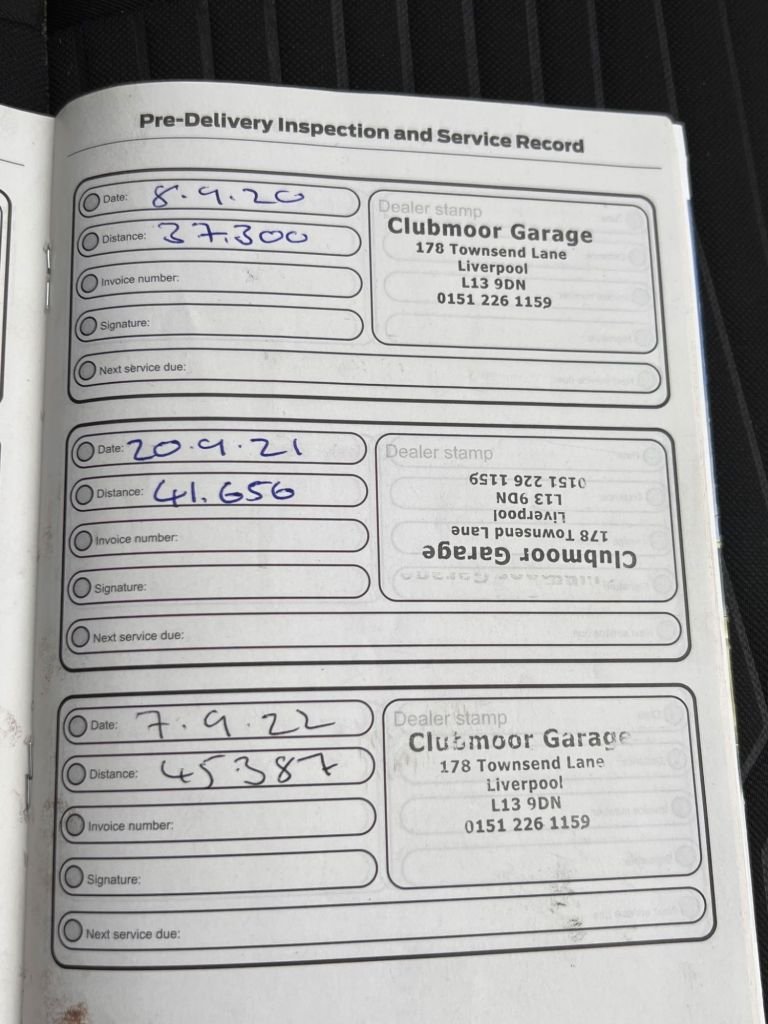 Pre-Delivery Inspection and Service Record
Date: 8.9.20
Distance: 37.300
Invoice number:
Signature:
Next service due:
Dealer stamp
Clubmoor Garage
178 Townsend Lane
Liverpool
L13 9DN
0151 226 1159
Date: 20.9.21
Distance: 41.656
Invoice number:
Signature:
Next service due:
Dealer stamp
Clubmoor Garage
178 Townsend Lane
Liverpool
L13 9DN
0151 226 1159
Date: 7.9.22
Distance: 45387
Invoice number:
Signature:
Next service due:
Dealer stamp
Clubmoor Garage
178 Townsend Lane
Liverpool
L13 9DN
0151 226 1159